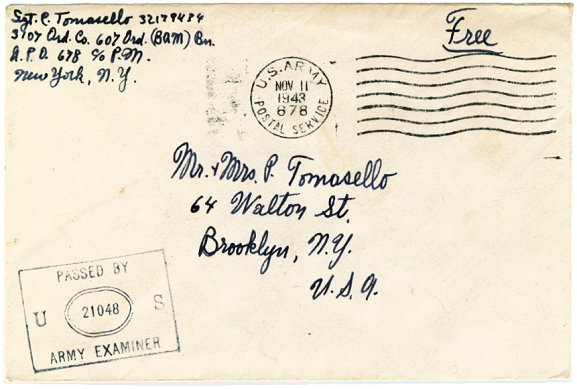 Sgt. C. Tomasello 32179484
3907 Ord. Co. 607 Ord. (BAM) Bn.
A.P.O. 678 c/o P.M.
New York, N.Y.
Free
U.S. ARMY
NOV 11
1943
678
POSTAL SERVICE
Mr. + Mrs. P. Tomasello
64 Walton St.
Brooklyn, N.Y.
U.S.A.
PASSED BY
U 21048 S
ARMY EXAMINER